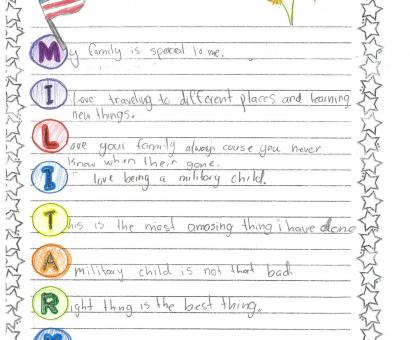 My family is special to me.
I love traveling to different places and learning
new things.
Love your family always cause you never
know when their gone.
I love being a military child.
This is the most amosing thing i have done
A military child is not that bad.
Right thng is the best thing.